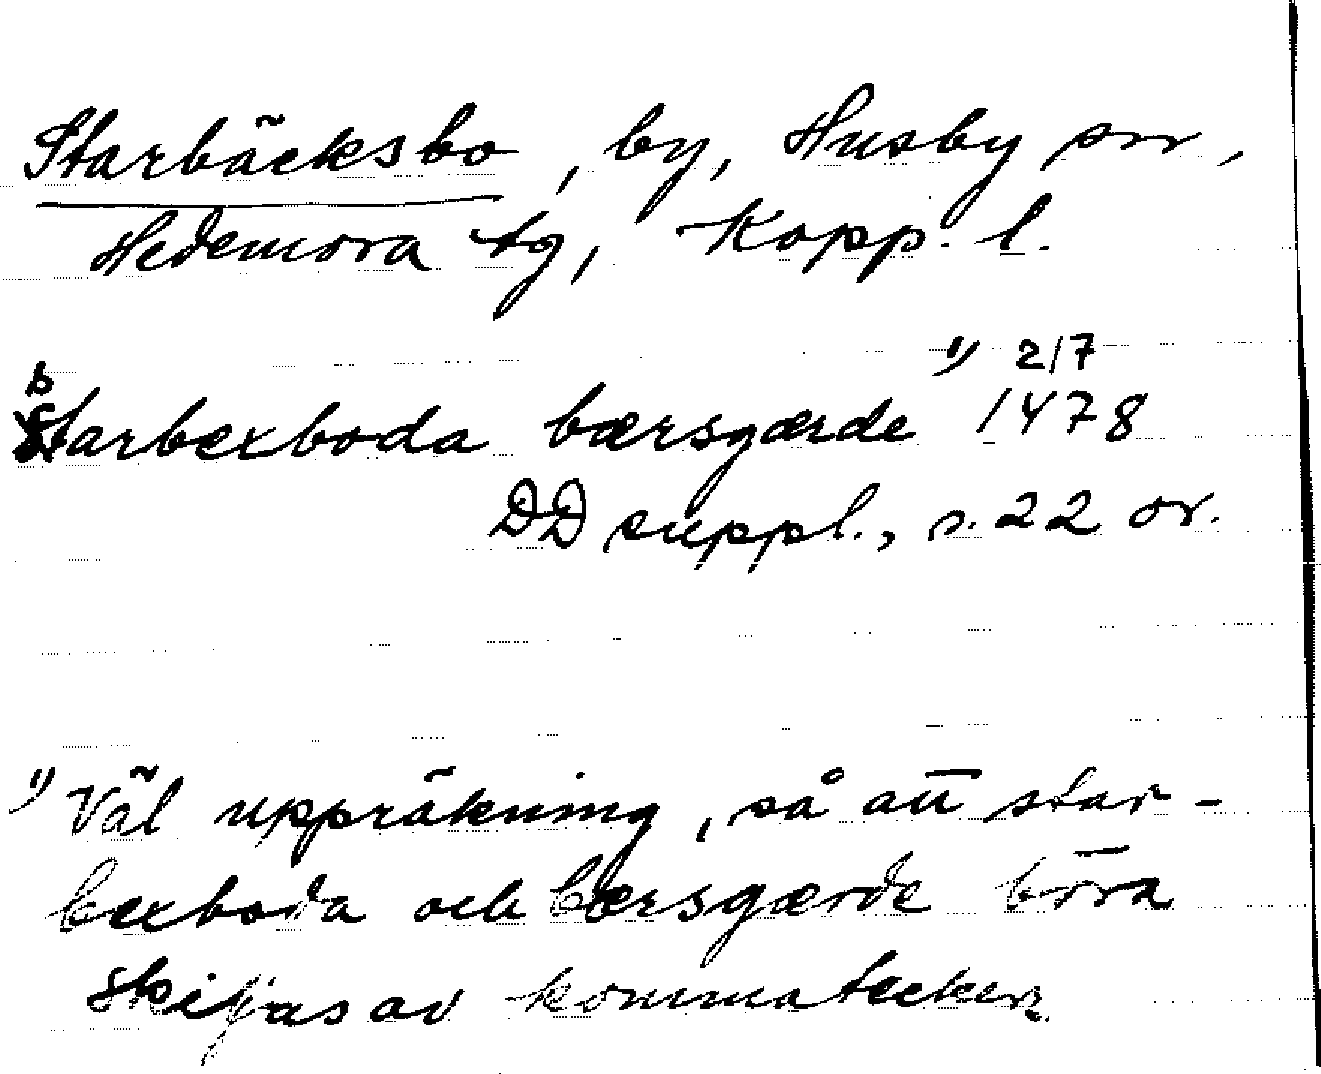 Starbäcksbo, by, Husby snr,
Hedemora tg, Kopp. l.
starbexboda bærsgærde 1) 2/7 1478
DD suppl., s. 22 or.
1) Väl uppräkning, så att star-
bexboda och bærsgærde böra
skiljas av kommatecken